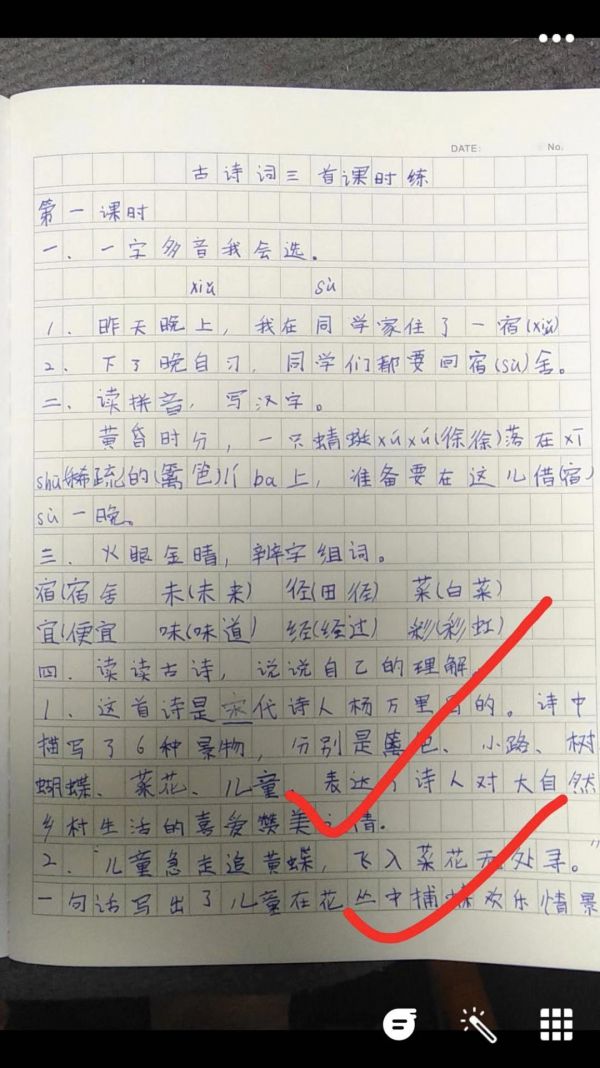 DATE: No.
古诗词三首课时练
第一课时
一、一字多音我会选。
xiǔ sù
1、昨天晚上，我在同学家住了一宿(xiǔ)
2、下了晚自习，同学们都要回宿(sù)舍。
二、读拼音，写汉字。
黄昏时分，一只蜻蜓xúxú(徐徐)落在xī
shū(稀疏)的(篱笆)lí ba上，准备要在这儿借(宿)
sù一晚。
三、火眼金睛，辨字组词。
宿(宿舍 未(未来) 径(田径) 菜(白菜)
宜(便宜 味(味道) 经(经过) 彩(彩虹)
四、读读古诗，说说自己的理解。
1、这首诗是宋代诗人杨万里的。诗中
描写了6种景物，分别是篱笆、小路、树
蝴蝶、菜花、儿童，表达了诗人对大自然
乡村生活的喜爱赞美之情.
2、"儿童急走追黄蝶，飞入菜花无处寻。"
一句话写出了儿童在花丛中捕蝶欢乐情景